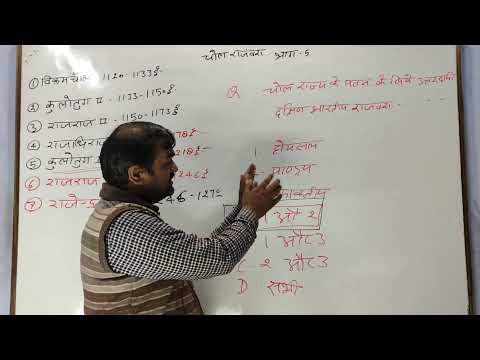 चोल राजवंश भाग-5
① विक्रम चोल - 1120-1133ई॰
② कुलोतुंग II - 1133-1150ई॰
③ राजराज II - 1150-1173ई॰
④ राजाधिराज 78ई॰
⑤ कुलोतुंग 218ई॰
⑥ राजराज 246ई॰
⑦ राजेन्द्र 46-127
Q चोल राज्य के पतन के लिये उत्तरदायी
दक्षिण भारतीय राजवंश - - -
1. होयसल
पाण्ड्य
काकतीय
1 और 2
1 और 3
C 2 और 3
D सभी